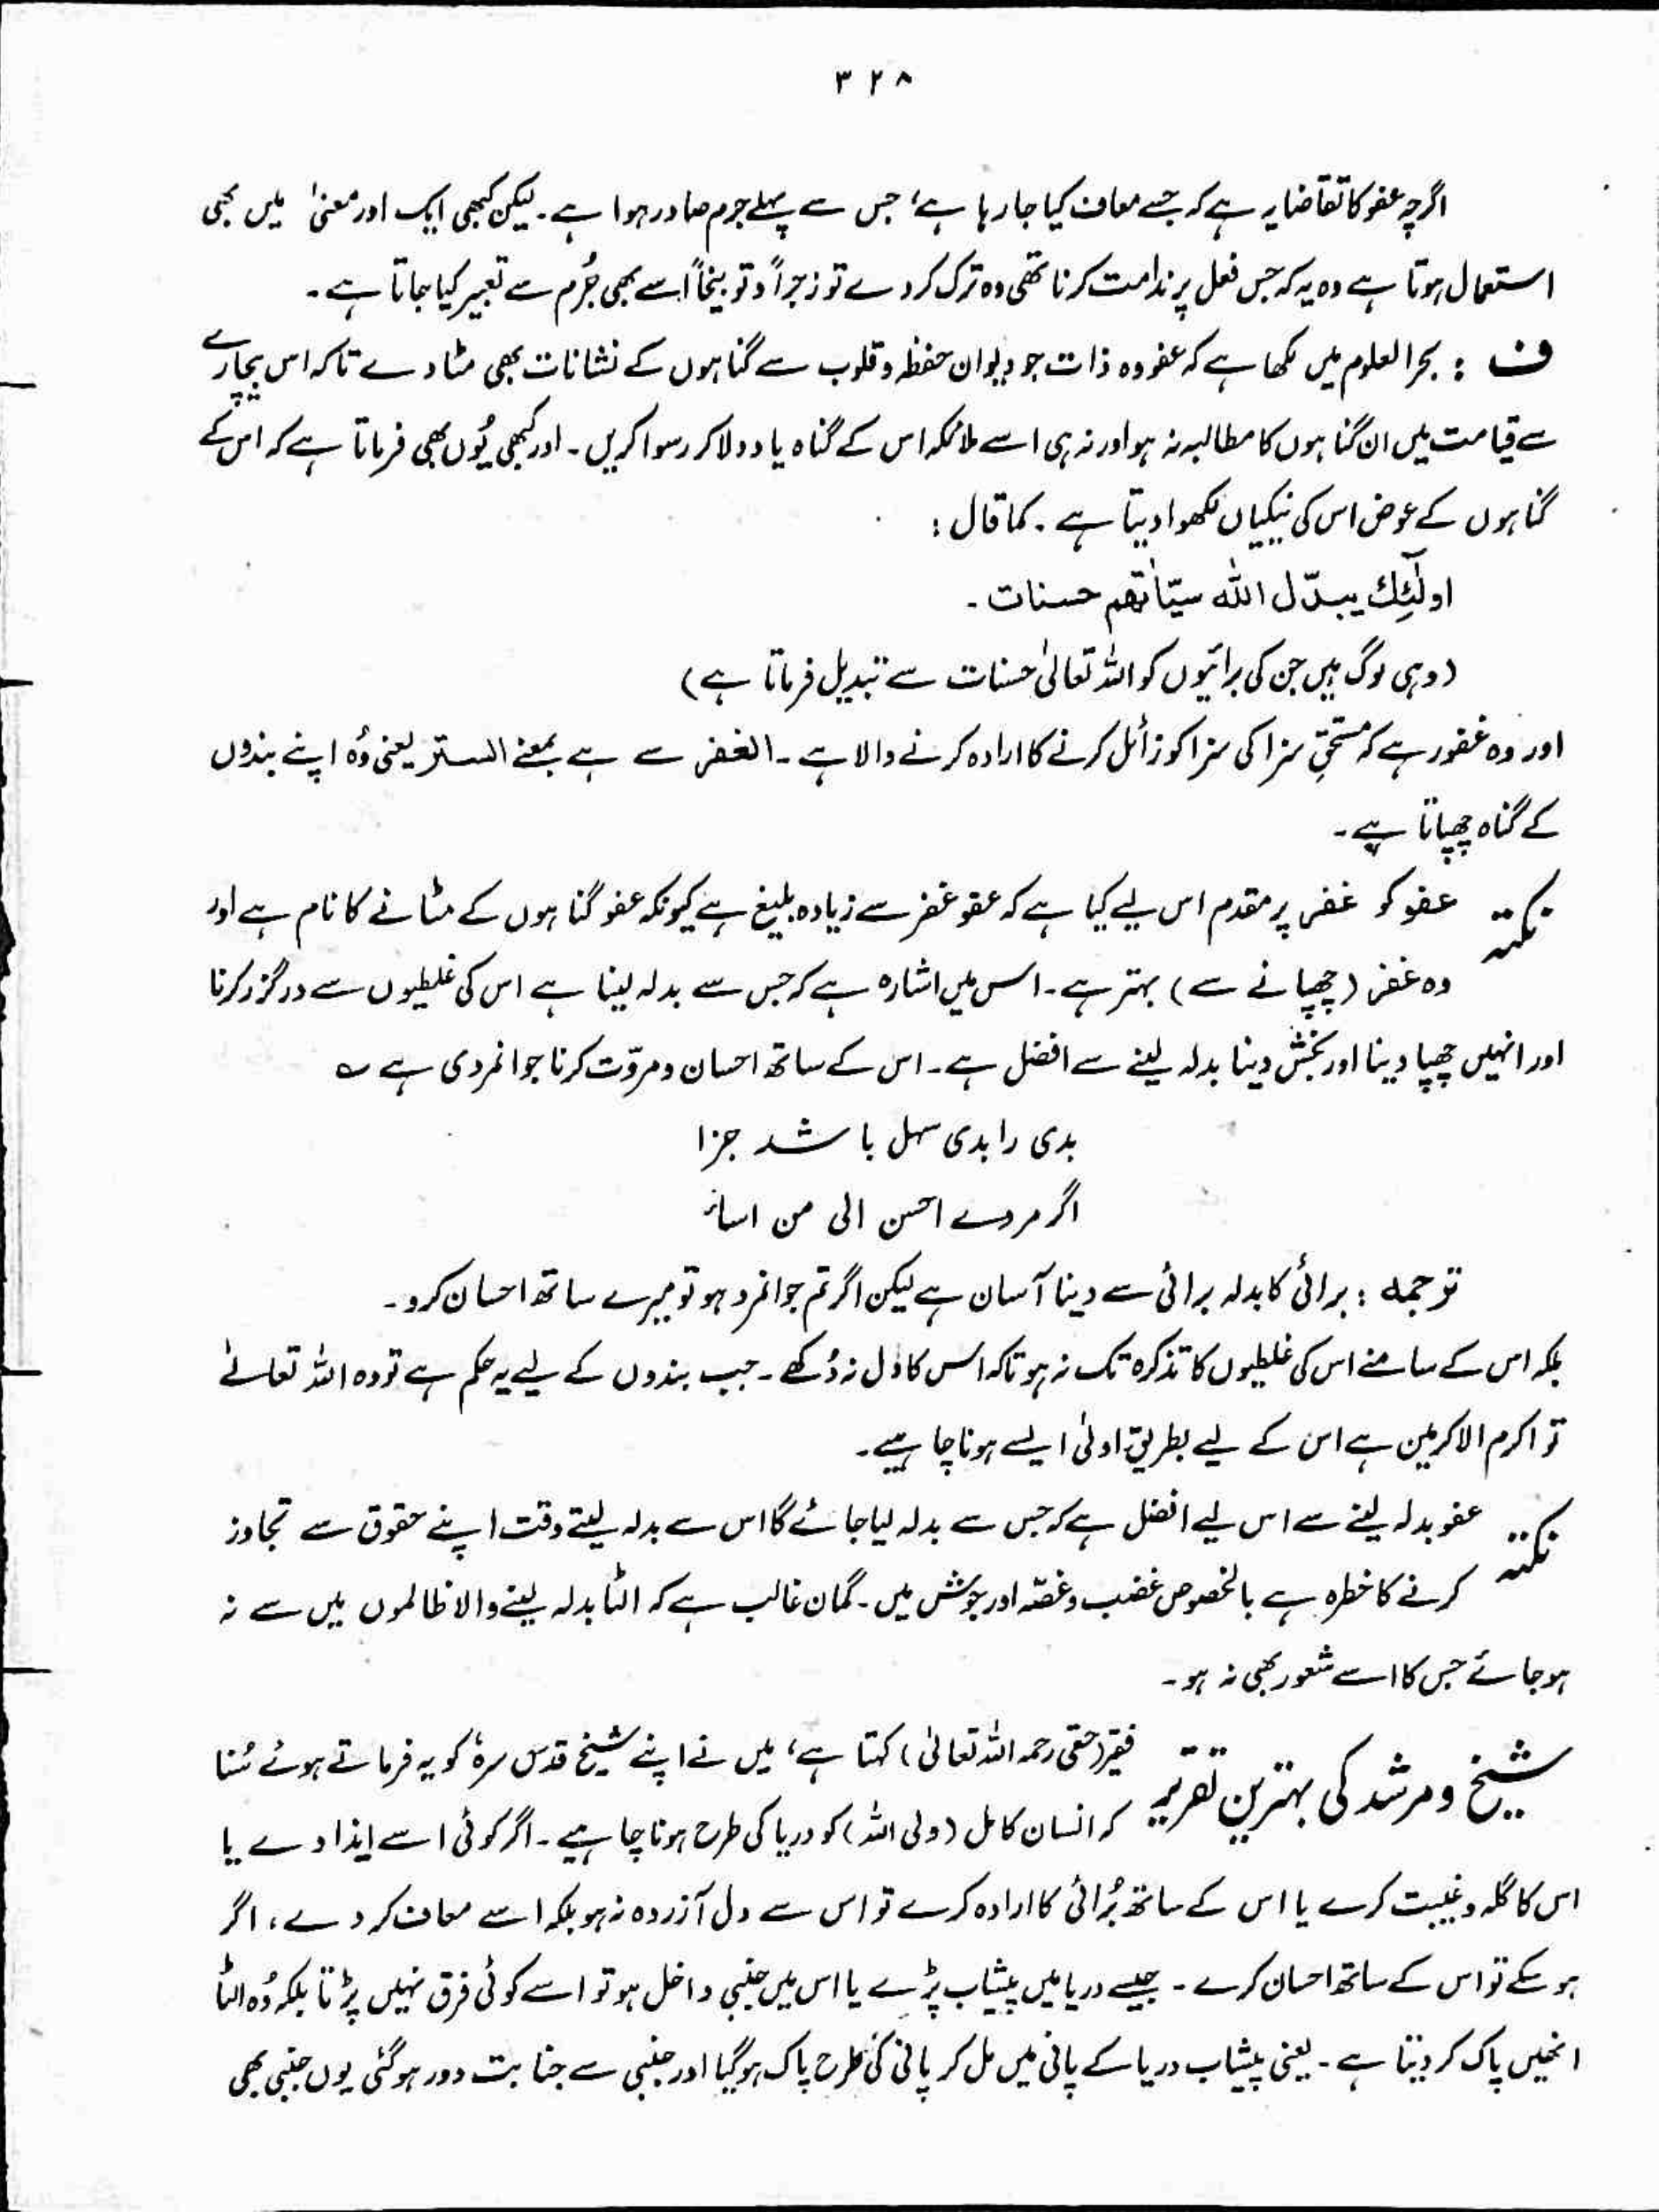 ۳۲۸
اگرچہ عفو کا تقاضا یہ ہے کہ جسے معاف کیا جا رہا ہے، جس سے پہلے جرم صادر ہوا ہے۔ لیکن کبھی ایک اور معنیٰ میں بھی
استعمال ہوتا ہے وہ یہ کہ جس فعل پر ندامت کرنا تھی وہ ترک کر دے تو زجراً و توبیخاً اسے بھی جُرم سے تعبیر کیا جاتا ہے۔
ف : بحر العلوم میں لکھا ہے کہ عفو وہ ذات جو دیوان حفظہ و قلوب سے گناہوں کے نشانات بھی مٹا دے تاکہ اس بیچارے
سے قیامت میں ان گناہوں کا مطالبہ نہ ہو اور نہ ہی اسے ملائکہ اس کے گناہ یاد دلا کر رسوا کریں۔ اور کبھی یُوں بھی فرماتا ہے کہ اس کے
گناہوں کے عوض اس کی نیکیاں لکھوا دیتا ہے۔ کما قال :
اولٰٓئِك یبدّل اللّٰہ سیّاٰتھم حسنات۔
(وہی لوگ ہیں جن کی برائیوں کو اللہ تعالیٰ حسنات سے تبدیل فرماتا ہے)
اور وہ غفور ہے کہ مستحقِ سزا کی سزا کو زائل کرنے کا ارادہ کرنے والا ہے۔ الغفر سے ہے بمعنے الستر یعنی وُہ اپنے بندوں
کے گناہ چھپاتا ہے۔
نکتہ عفو کو غفر پر مقدم اس لیے کیا ہے کہ عفو غفر سے زیادہ بلیغ ہے کیونکہ عفو گناہوں کے مٹانے کا نام ہے اور
وہ غفر (چھپانے سے) بہتر ہے۔ اس میں اشارہ ہے کہ جس سے بدلہ لینا ہے اس کی غلطیوں سے درگزر کرنا
اور انہیں چھپا دینا اور بخش دینا بدلہ لینے سے افضل ہے۔ اس کے ساتھ احسان و مروّت کرنا جوانمردی ہے ؎
بدی را بدی سہل باشد جزا
اگر مردے احسن الی من اساء
ترجمہ : برائی کا بدلہ برائی سے دینا آسان ہے لیکن اگر تم جوانمرد ہو تو میرے ساتھ احسان کرو۔
بلکہ اس کے سامنے اس کی غلطیوں کا تذکرہ تک نہ ہو تاکہ اس کا دل نہ دُکھے۔ جب بندوں کے لیے یہ حکم ہے تو وہ اللہ تعالےٰ
تو اکرم الاکرمین ہے اس کے لیے بطریقِ اولیٰ ایسے ہونا چاہیے۔
نکتہ عفو بدلہ لینے سے اس لیے افضل ہے کہ جس سے بدلہ لیا جائے گا اس سے بدلہ لیتے وقت اپنے حقوق سے تجاوز
کرنے کا خطرہ ہے بالخصوص غضب و غصّہ اور جوش میں۔ گمان غالب ہے کہ الٹا بدلہ لینے والا ظالموں میں سے نہ
ہو جائے جس کا اسے شعور بھی نہ ہو۔
شیخ و مرشد کی بہترین تقریر فقیر (حقی رحمہ اللہ تعالیٰ) کہتا ہے، میں نے اپنے شیخ قدس سرہٗ کو یہ فرماتے ہوئے سُنا
کہ انسان کامل (ولی اللہ) کو دریا کی طرح ہونا چاہیے۔ اگر کوئی اسے ایذا دے یا
اس کا گلہ و غیبت کرے یا اس کے ساتھ بُرائی کا ارادہ کرے تو اس سے دل آزردہ نہ ہو بلکہ اسے معاف کر دے، اگر
ہو سکے تو اس کے ساتھ احسان کرے۔ جیسے دریا میں پیشاب پڑے یا اس میں جنبی داخل ہو تو اسے کوئی فرق نہیں پڑتا بلکہ وُہ الٹا
انھیں پاک کر دیتا ہے۔ یعنی پیشاب دریا کے پانی میں مل کر پانی کی طرح پاک ہو گیا اور جنبی سے جنابت دور ہو گئی یوں جنبی بھی